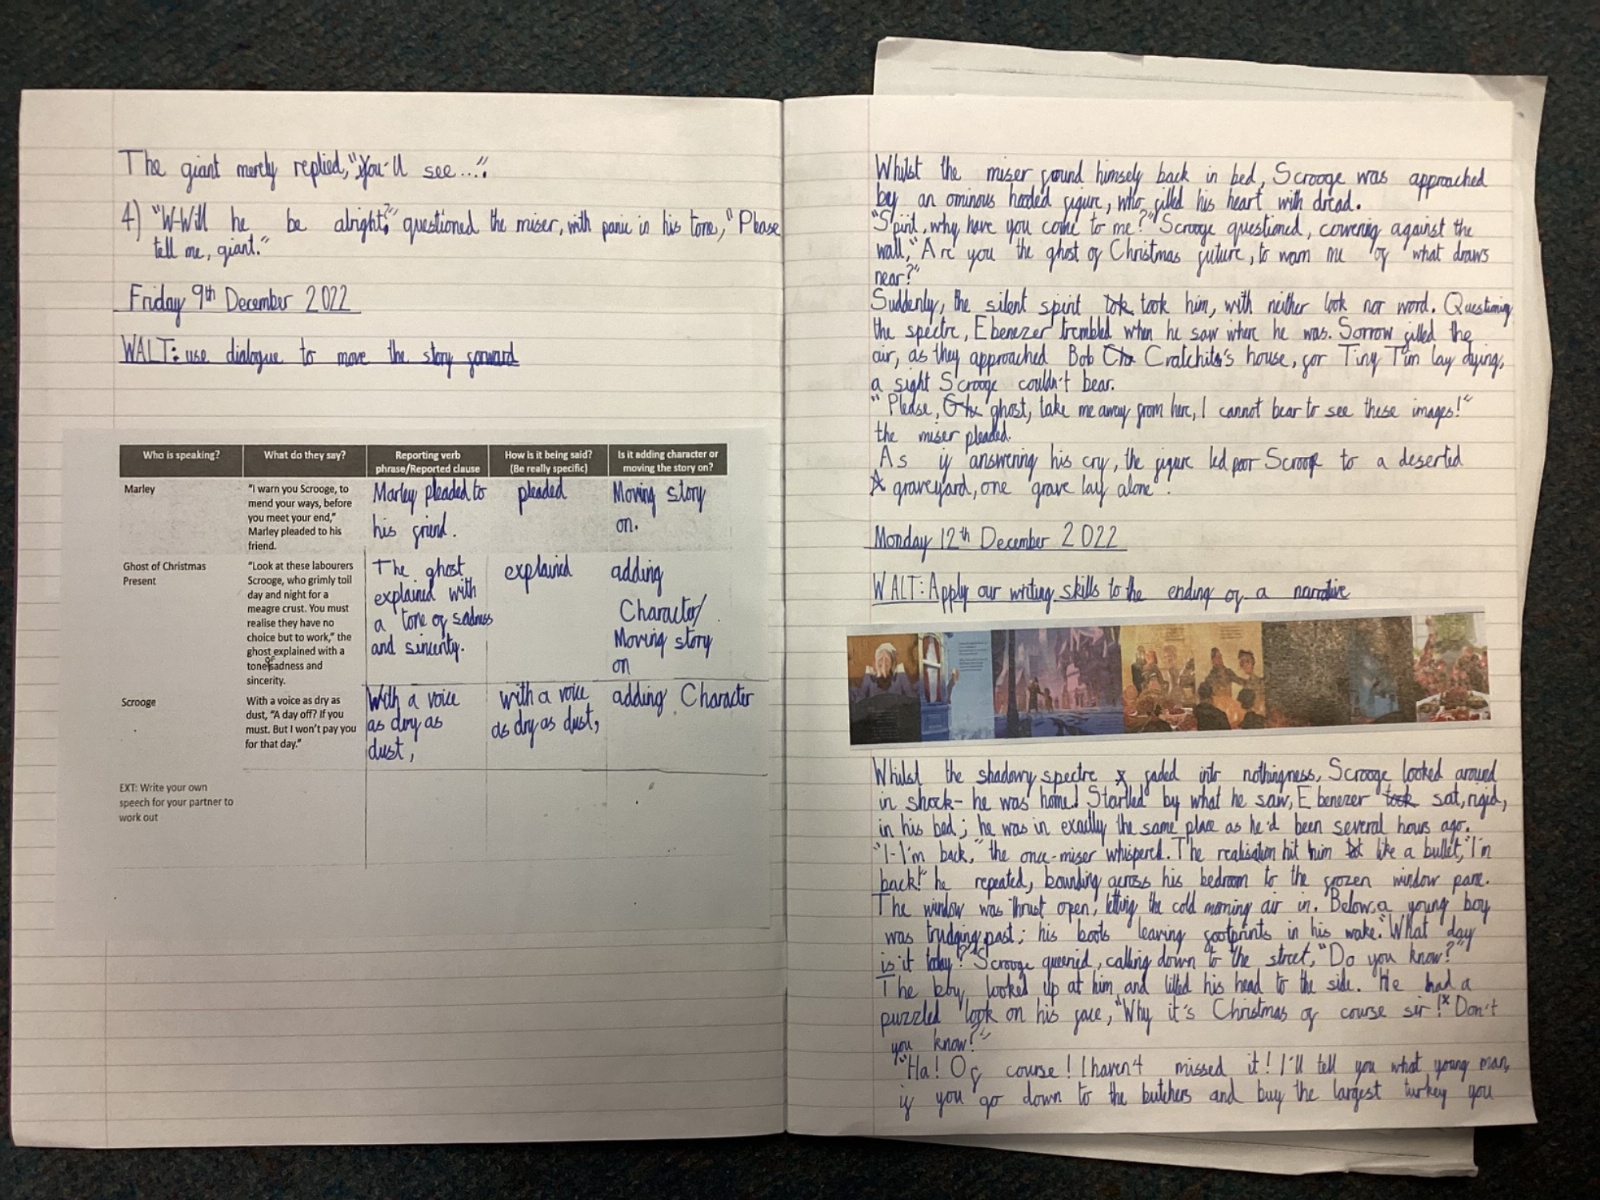 The giant merely replied, "You'll see...".
4) "W-Will he be alright?" questioned the miser, with panic in his tone, "Please
tell me, giant."
Friday 9th December 2022
WALT: use dialogue to move the story forward
Who is speaking?
What do they say?
Reporting verb
phrase/Reported clause
How is it being said?
(Be really specific)
Is it adding character or
moving the story on?
Marley
"I warn you Scrooge, to
mend your ways, before
you meet your end,"
Marley pleaded to his
friend.
Marley pleaded to
his friend.
pleaded
Moving story
on.
Ghost of Christmas
Present
"Look at these labourers
Scrooge, who grimly toil
day and night for a
meagre crust. You must
realise they have no
choice but to work," the
ghost explained with a
tone of sadness and
sincerity.
The ghost
explained with
a tone of sadness
and sincerity.
explained
adding
Character/
Moving story
on
Scrooge
With a voice as dry as
dust, "A day off? If you
must. But I won't pay you
for that day."
With a voice
as dry as
dust,
with a voice
as dry as dust,
adding Character
EXT: Write your own
speech for your partner to
work out
Whilst the miser found himself back in bed, Scrooge was approached
by an ominous hooded figure, who filled his heart with dread.
"Spirit, why have you come to me?" Scrooge questioned, cowering against the
wall, "Are you the ghost of Christmas future, to warn me of what draws
near?"
Suddenly, the silent spirit tok took him, with neither look nor word. Questioning
the spectre, Ebenezer trembled when he saw where he was. Sorrow filled the
air, as they approached Bob Cratchits's house, for Tiny Tim lay dying,
a sight Scrooge couldn't bear.
"Please, ghost, take me away from here, I cannot bear to see these images!"
the miser pleaded.
As if answering his cry, the figure led poor Scrooge to a deserted
graveyard, one grave lay alone.
Monday 12th December 2022
WALT: Apply our writing skills to the ending of a narrative
Whilst the shadowy spectre faded into nothingness, Scrooge looked around
in shock- he was home! Startled by what he saw, Ebenezer took sat, rigid,
in his bed; he was in exactly the same place as he'd been several hours ago.
"I-I'm back," the once-miser whispered. The realisation hit him like a bullet, "I'm
back!" he repeated, bounding across his bedroom to the frozen window pane.
The window was thrust open, letting the cold morning air in. Below, a young boy
was trudging past; his boots leaving footprints in his wake. "What day
is it today?" Scrooge queried, calling down to the street, "Do you know?"
The boy looked up at him, and tilted his head to the side. He had a
puzzled look on his face, "Why it's Christmas of course sir! Don't
you know?"
"Ha! Of course! I haven't missed it! I'll tell you what young man,
if you go down to the butchers and buy the largest turkey you